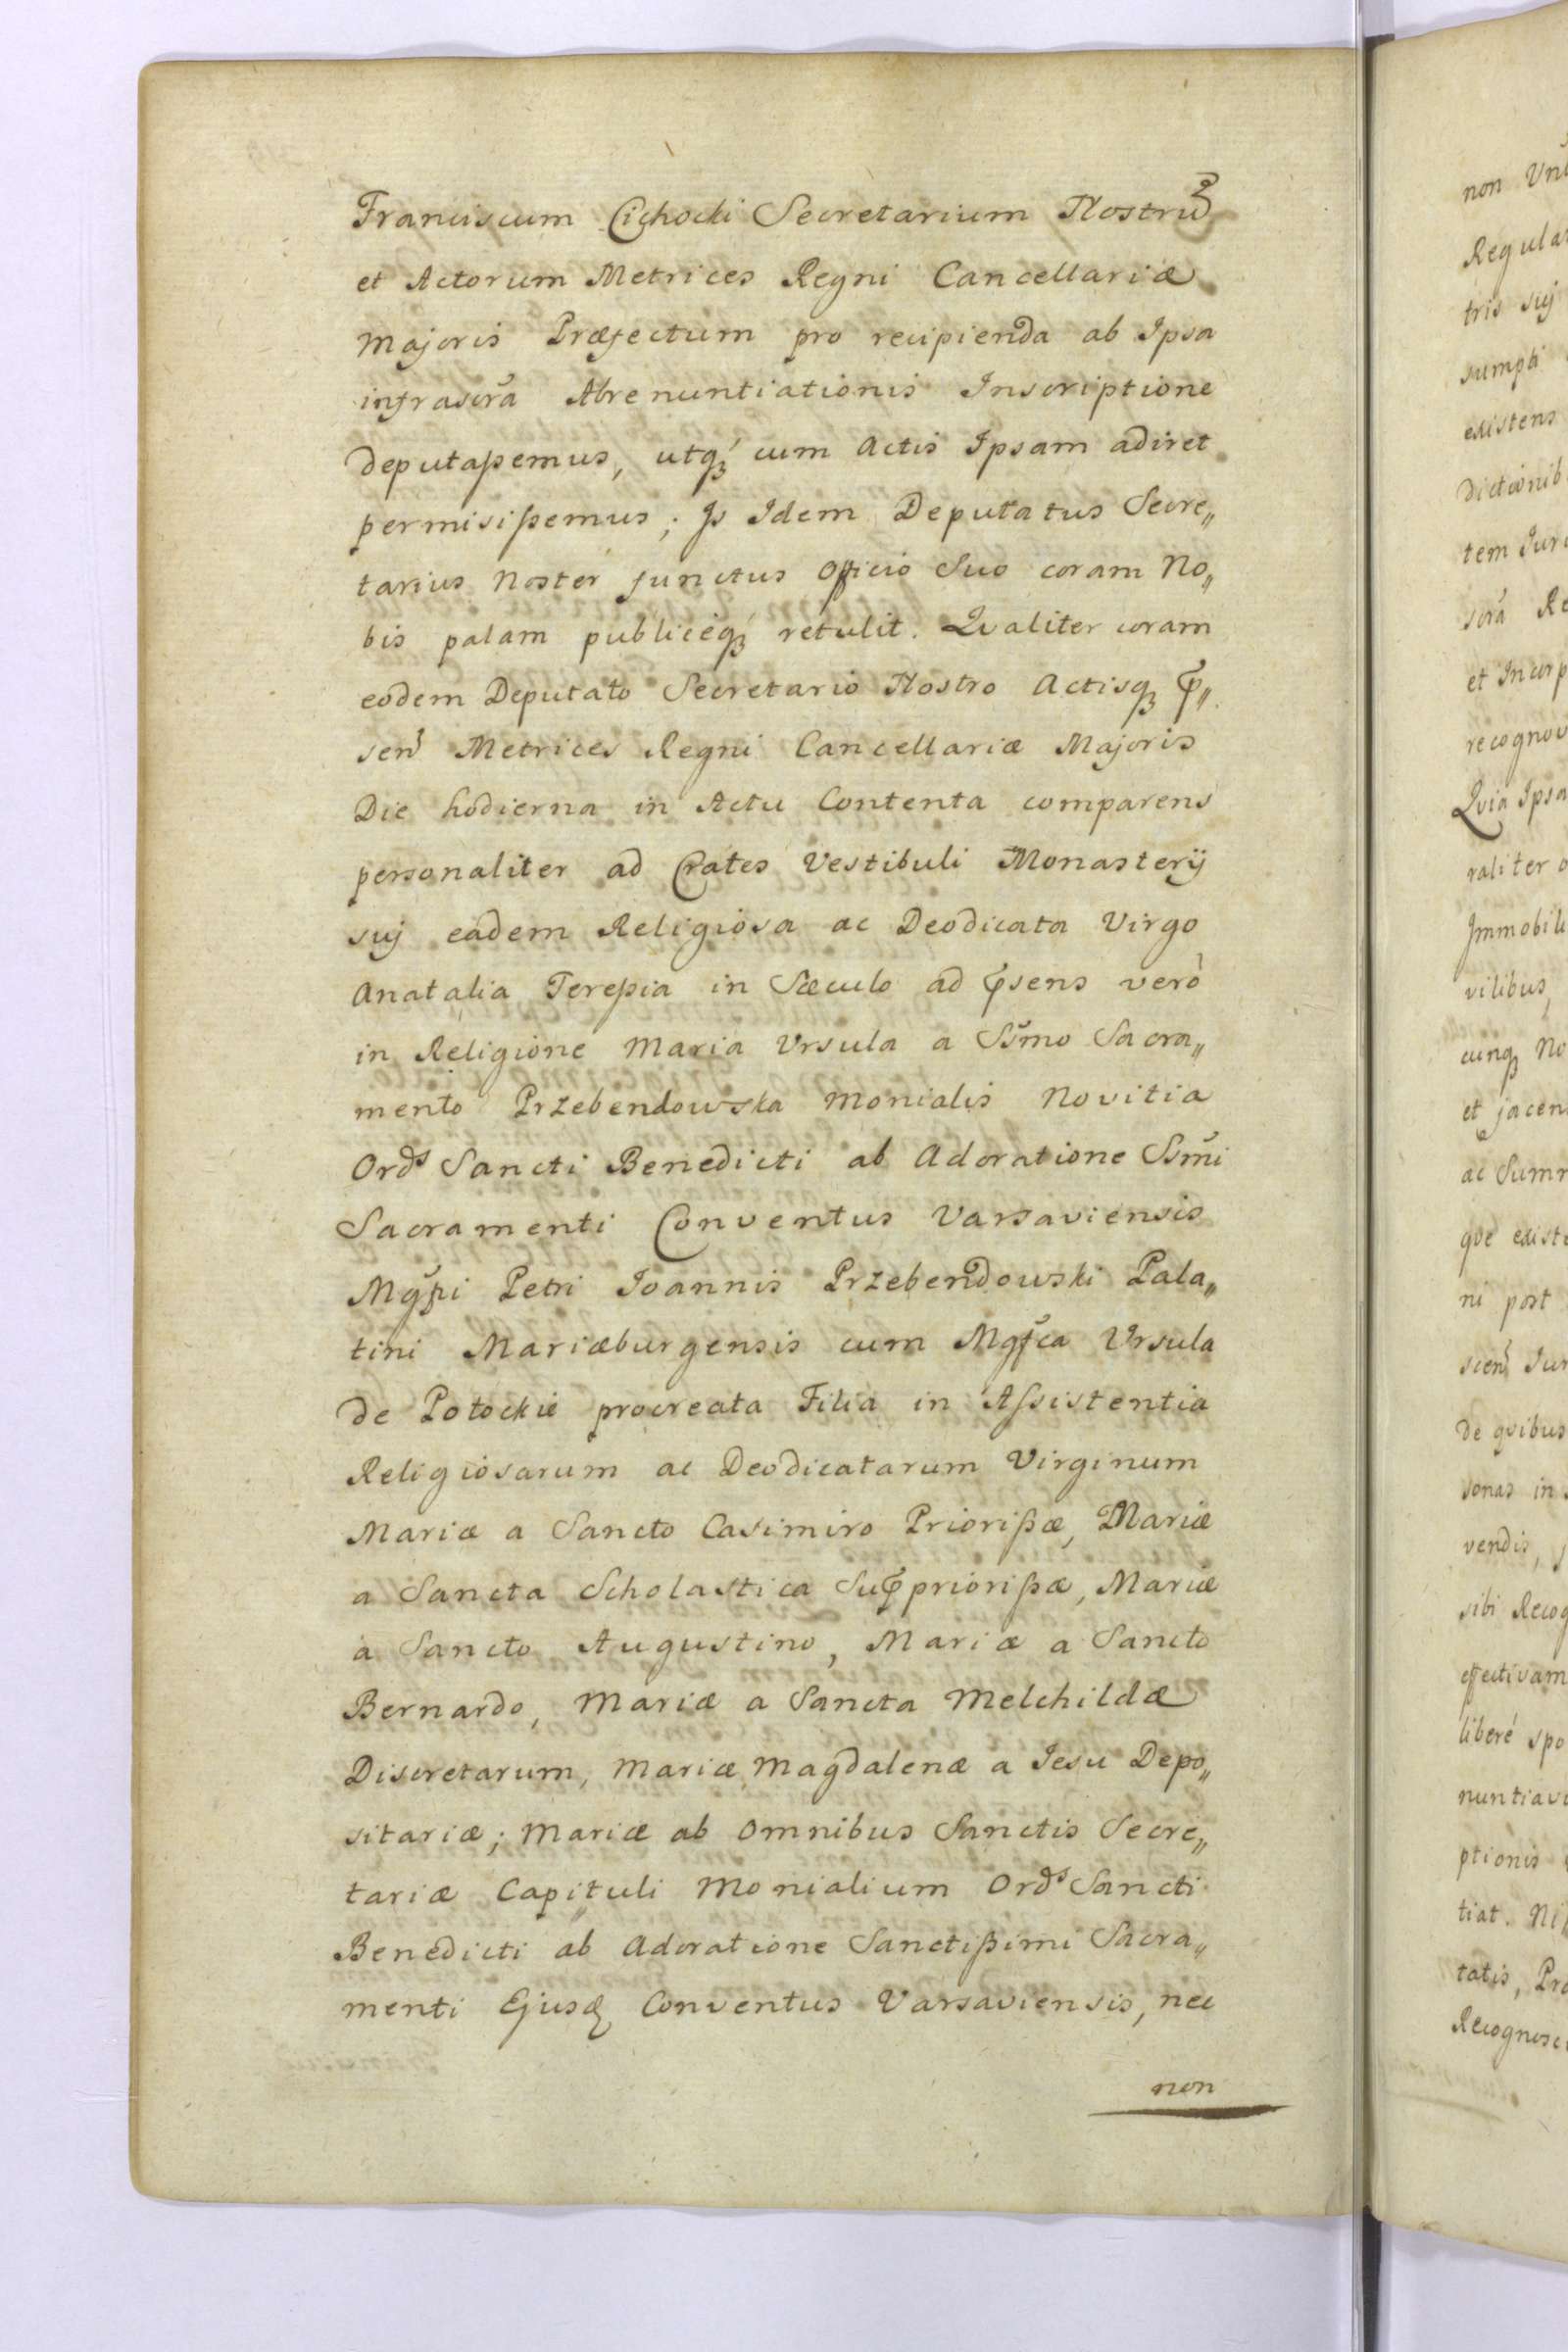 Franciscum Cichocki Secretarium Nostrũ
et Actorum Metrices Regni Cancellariæ
Majoris Præfectum pro recipienda ab Ipsa
infrascrã Abrenuntiationis Inscriptione
deputaßemus, utq́ꝫ cum Actis Ipsam adiret
permisißemus; Is Idem Deputatus Secre„
tarius Noster functus Officio Suo coram No„
bis palam publicéqꝫ retulit. Qvaliter coram
eodem Deputato Secretario Nostro Actisqꝫ p̃„
sen̄ Metrices Regni Cancellariæ Majoris
Die hodierna in Actu Contenta comparens
personaliter ad Crates Vestibuli Monasterij
suj eadem Religiosa ac Deodicata Virgo
Anatalia Tereßia in Sæculo ad p̃sens verò
in Religione Maria Vrsula a Ss̃mo Sacra„
mento Przebendowska Monialis Novitia
Ordˢ Sancti Benedicti ab Adoratione Ss̃mi
Sacramenti Conventus Varsaviensis
Mgf̃i Petri Ioannis Przebendowski Pala„
tini Mariæburgensis cum Mgf̃ca Vrsula
de Potockie procreata Filia in Aſsistentia
Religiosarum ac Deodicatarum Virginum
Mariæ a Sancto Casimiro Priorißæ, Mariæ
a Sancta Scholastica Sup̃priorißæ, Mariæ
a Sancto Augustino, Mariæ a Sancto
Bernardo, Mariæ a Sancta Melchildæ
Discretarum, Mariæ Magdalenæ a Iesu Depo„
sitariæ; Mariæ ab Omnibus Sanctis Secre„
tariæ Capituli Monialium Ordˢ Sancti
Benedicti ab Adoratione Sanctißimi Sacra„
menti Ejusđ Conventus Varsaviensis, nec
non
non
Regular
tris suj
sumpti
existens
Dictionib
tem Juri
scrã Re
et Incorp
recognov
Qvia Ipsa
raliter
Immobili
vilibus,
cunqꝫ No
et jacen
ac Summ
qve existe
ni post
scen̄ Jur
de qvibus
sonas in
vendis,
sibi Recog
effectivam
liberé spo
nuntiavi
ptionis
tiat. Ni
tatis, Pro
Recognosc